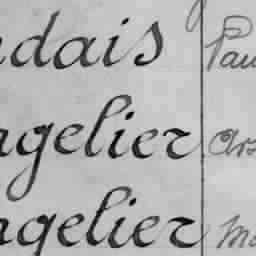 ndais Pau
ngelier Ars
ngelier Ma